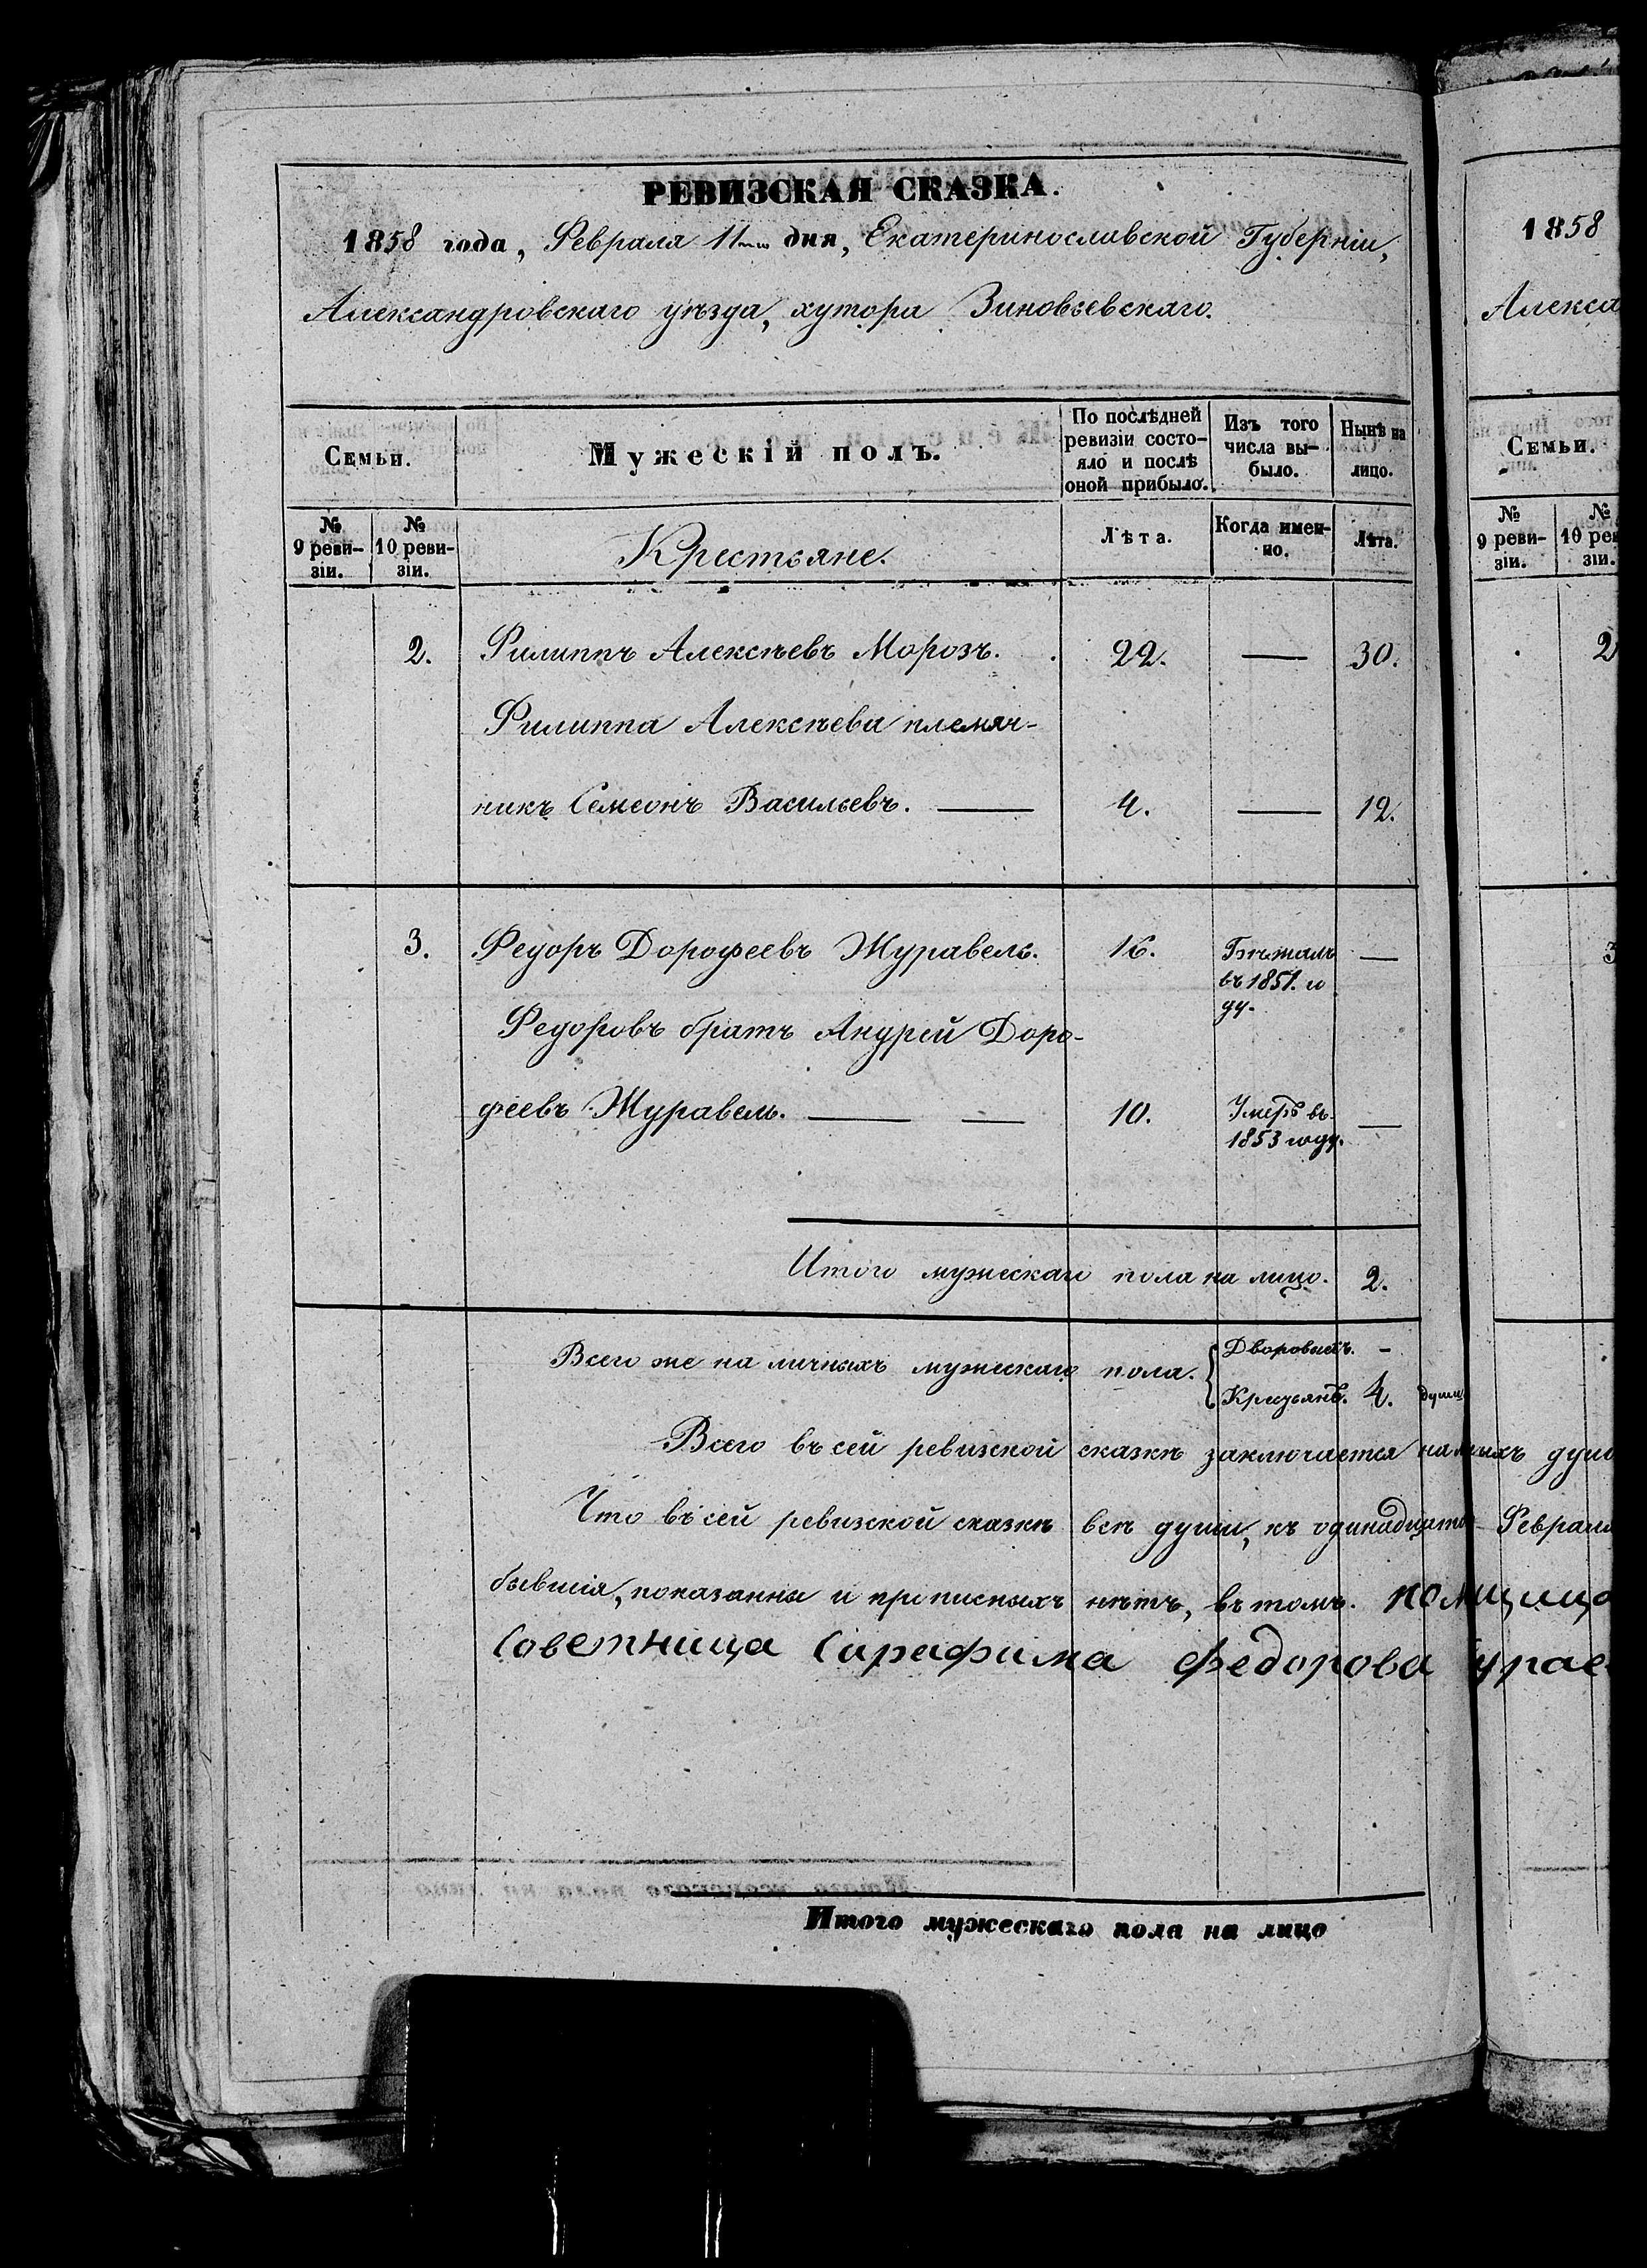 РЕВИЗСКАЯ СКАЗКА.
1858 года, Февраля 11го дня, Екатеринославской Губерніи,
Александровскаго уѣзда, хутора Зиновьевскаго.
Семьи. Мужескій полъ. По послѣдней ревизіи состояло и послѣ оной прибыло. Изъ того числа выбыло. Нынѣ на лицо.
№ 9 ревизіи. № 10 ревизіи. Крестьяне. Лѣта. Когда именно. Лѣта.
2. Филиппъ Алексѣевъ Морозъ. 22. — 30.
Филиппа Алексѣева племян-
никъ Семеонъ Васильевъ. — 4. — 12.
3. Федоръ Дорофеевъ Журавель. 16. Бѣжалъ —
въ 1851. го
ду.
Федоровъ братъ Андрей Доро-
феевъ Журавель. — — 10. Умеръ въ —
1853 году.
Итого мужескаго пола на лицо. 2.
Всего же на личныхъ мужескаго пола. Дворовыхъ. -
Крестьянъ. 4. душъ
Всего въ сей ревизской сказкѣ заключается душ
Что въ сей ревизской сказкѣ всѣ души, къ одинадцато Феврал
бывшія, показанны и прописныхъ нѣтъ, въ томъ.
Советница Сарафима Федорова
Итого мужескаго пола на лицо
1858
Алекса
Семьи.
№ 9 ревизіи. № 10 рев
2
3